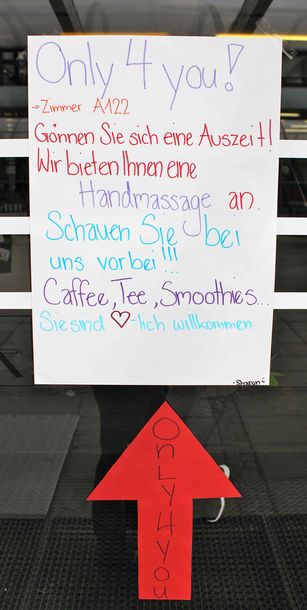 Only 4 you!
→ Zimmer A122
Gönnen Sie sich eine Auszeit!
Wir bieten Ihnen eine
Handmassage an.
Schauen Sie bei
uns vorbei!!!
Caffee, Tee, Smoothies...
Sie sind ♡-lich willkommen
Only 4 you